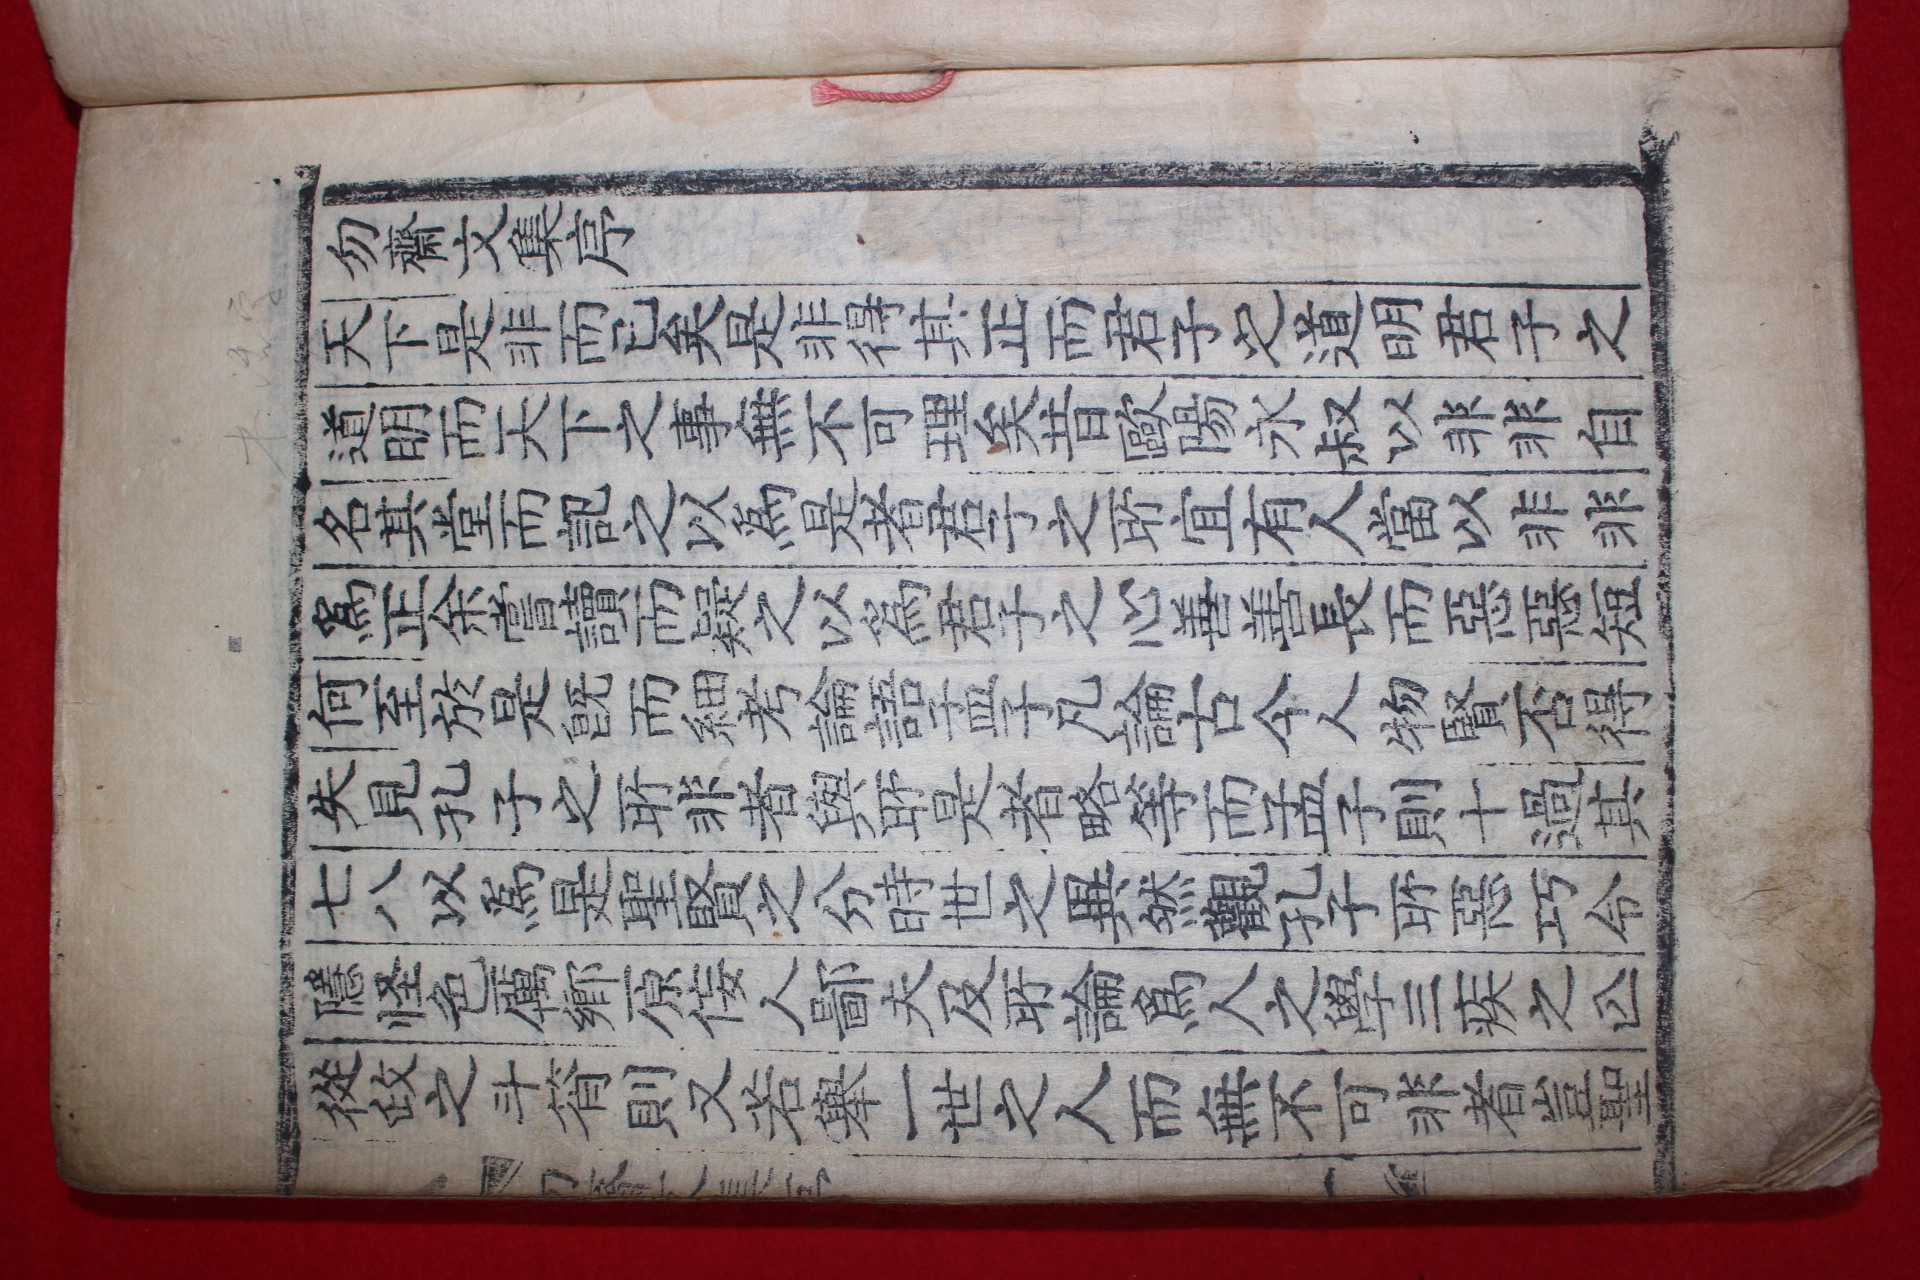 勿齋文集序
天下是非而已矣是非得其正而君子之道明君子之
道明而天下之事無不可理矣昔歐陽永叔以非非自
名其堂而記之以爲是者君子之所宜有人當以非非
爲正余嘗讀而疑之以爲君子之心善善長而惡惡短
何至於是旣而細考論語孟子凡論古今人物賢否得
失見孔子之所非者與所是者略等而孟子則十過其
七八以爲是聖賢之分時世之異然觀孔子所惡巧令
隱怪色厲鄕原佞人鄙夫及所論爲人之學三疾之亡
從政之斗筲則又若擧一世之人而無不可非者豈聖